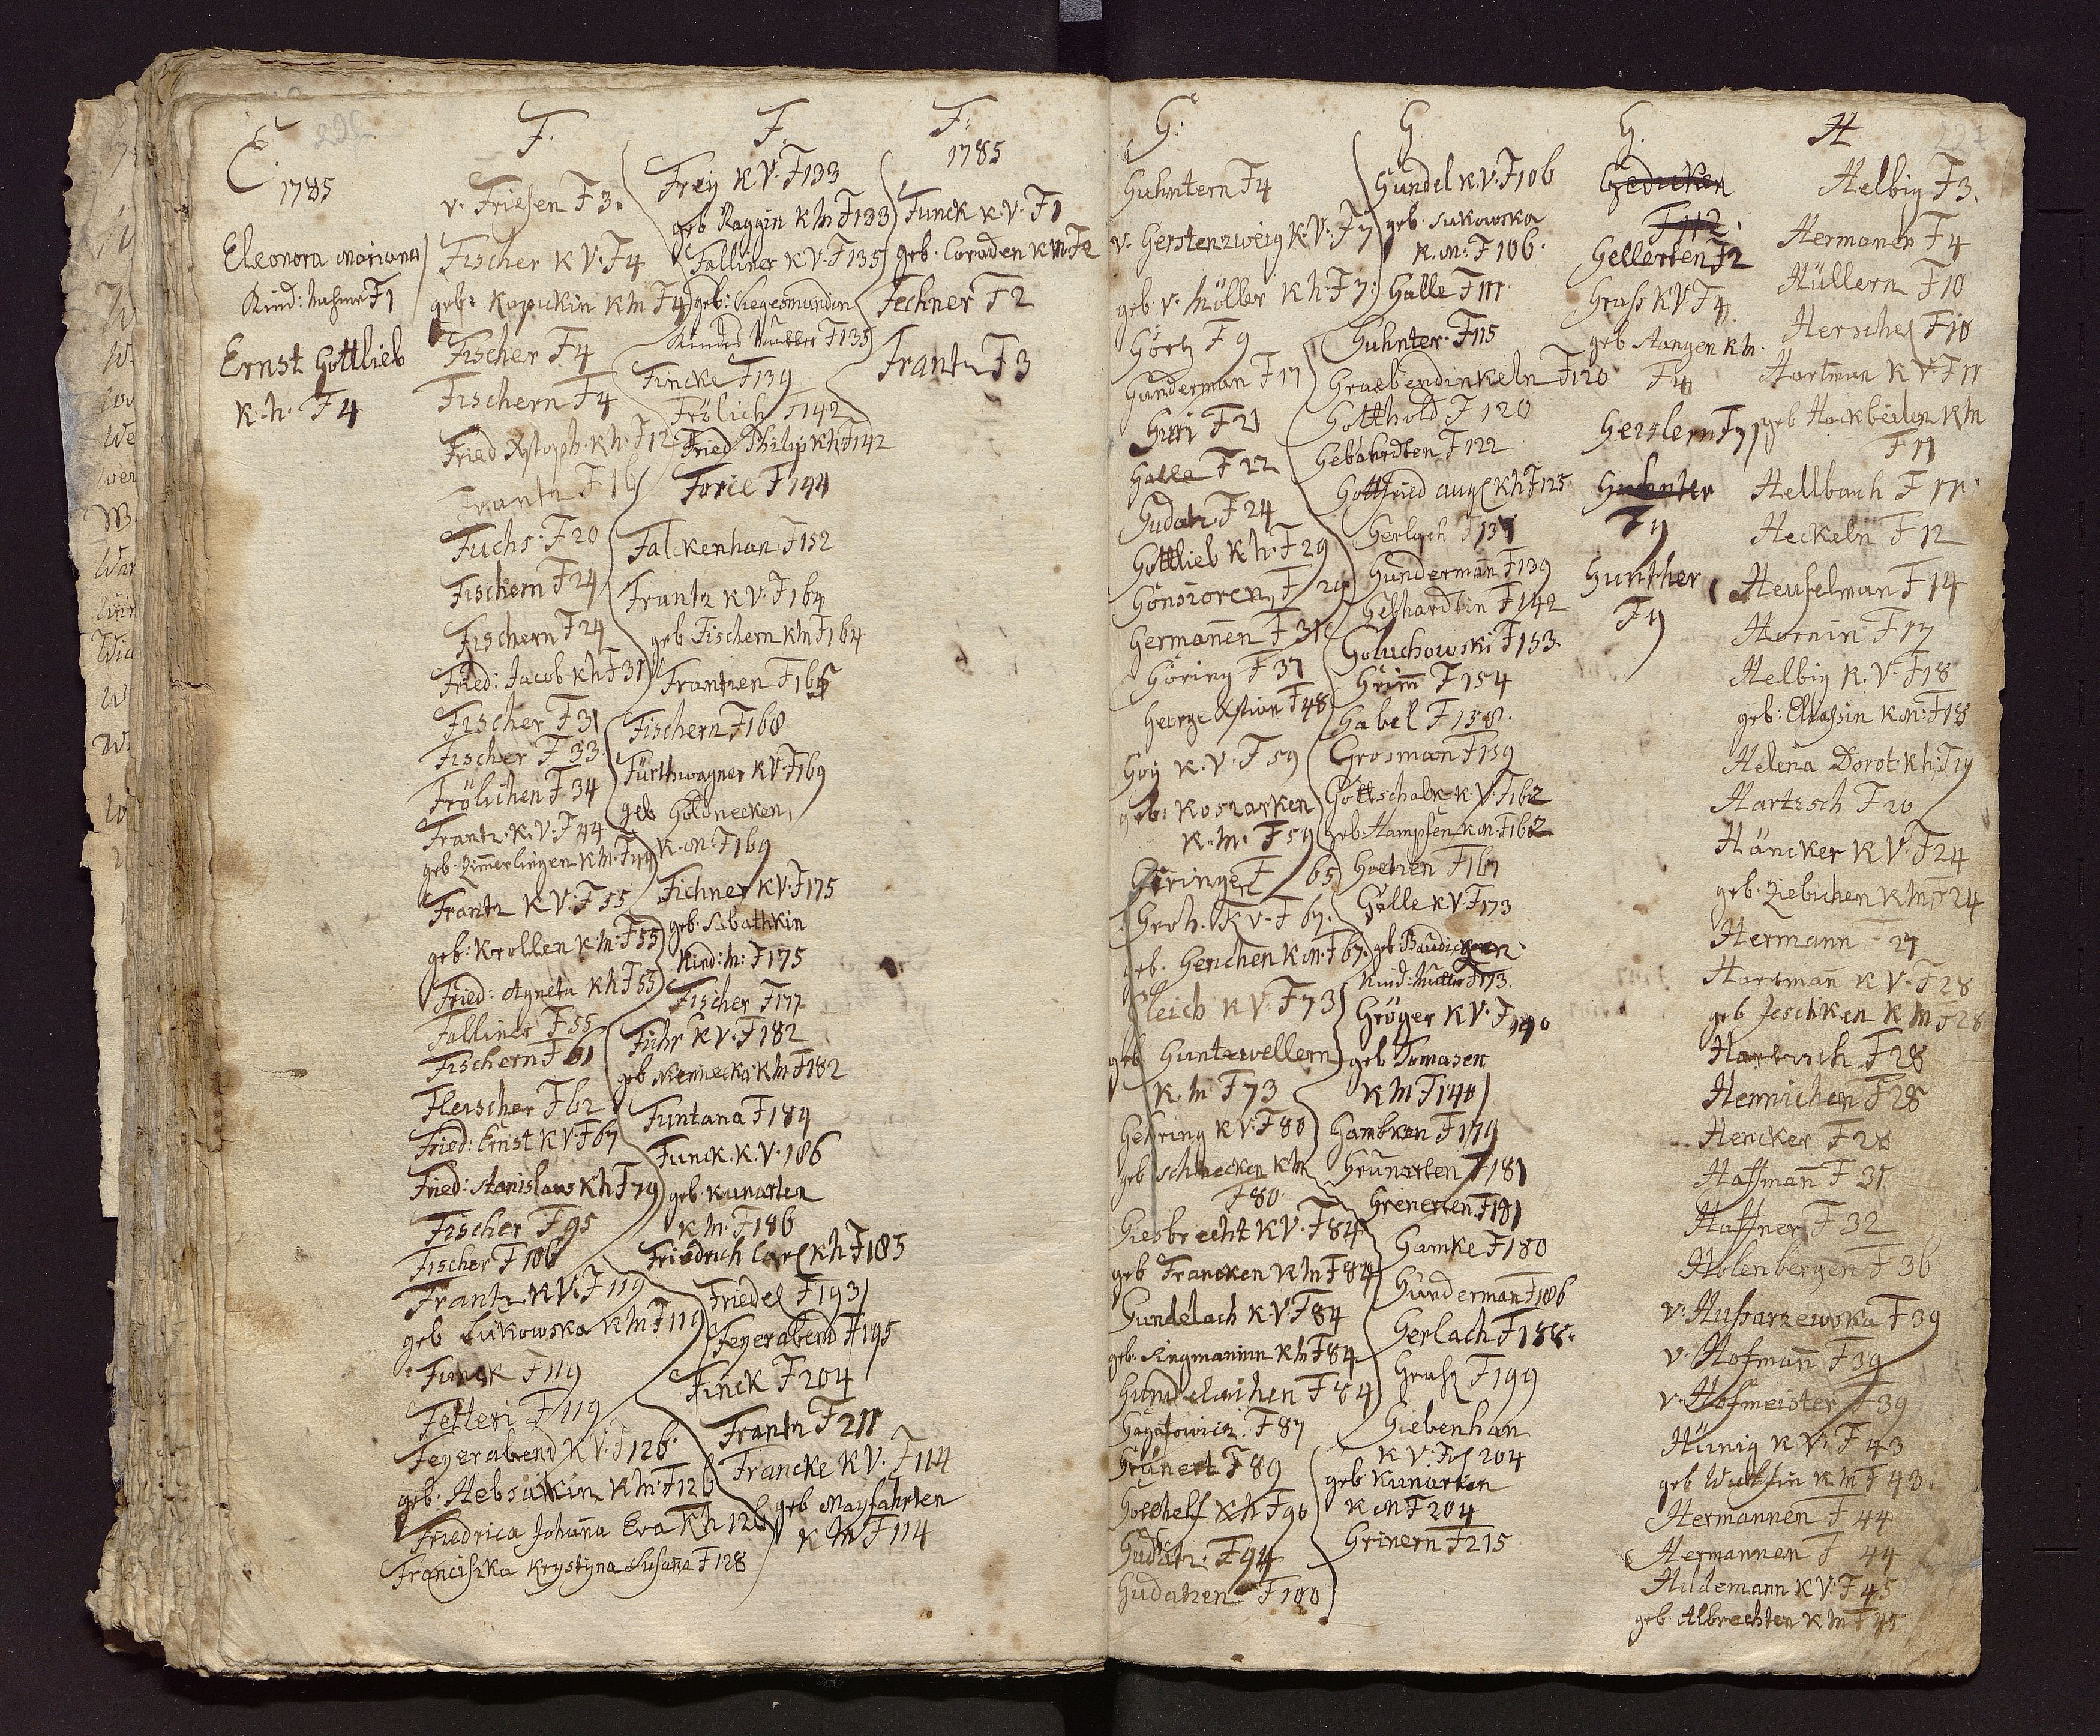 E
1785
Eleonora Mariana
Kind: F1
Ernst Gottlieb
K. h. F4
F.
v. Friesen F3.
Fischer K V. F4
geb: Kapukin K M F4
Fischer F4
Fischern F4
Fried Xstoph. K h. F12
Frantz F16
Fuchs. F20
Fischern F24
Fischern F24
Fried: Jacob K h F31
Fischer F31
Fischer F33
Frölichen F34
Frantz. K. V. F44
geb. Zimerlingen K M. F44
Frantz K V. F55
geb: Krollen K M: F55
Fried: Agneta K h F55
Falliner F55
Fischern F61
Fleischer F62
Fried: Ernst K V. F67
Fried: Stanislaus K h F79
Fischer F95
Fischer F106
Frantz K V. F119
geb Lukowska K M F119
Funck F119
Fetteri F119
Feyerabend K V. F126.
geb. Hebsakin K M. F126
Friedrica Johana Eva K h 126
Franciszka Krystyna Susana F128
F.
Frey K V. F133
geb Raggin K M F133
Falliner K V. F135
geb: Kindes Mutter F135
Fincke F139
Frölich F142
Fried: Philip K h F142
Forie F144
Falckenhan F152
Frantz K V. F164
geb Fischern K M F164
Frantzen F165
Fischern F168
Fürthwagner K V. F169
geb Goldnecken
K. M: F169
Fichner K V. F175
geb. Sabathkin
Kind: M: F175
Fischer F177
Führ K V. F182
geb K M F182
Funtana F184
Funck. K. V. 186
geb. Kunarten
K M. F186
Friedrich Carl K h F185
Friedel F193
Feyerabend F195
Finck F204
Frantz F211
Francke K V. F114
geb Mayfahrten
K M F114
F.
1785
Funck K V. F1
geb. Coraden K M F2
Fechner F2
Frantz F3
G:
Guhntern F4
v. Gerstenzweig K. V. F7
geb. v. Möller K h. F7
Görtz F9
Gunderman F17
F21
Galle F22
Gudatz F24
Gottlieb K h. F29
Gonsioren F29
Germanen F31
Göring F37
George Xstian F48
Goy K. V. F59
geb: Kosiarken
K. M. F59
Geringer F65
Groh. K V. F67.
geb. Gerichen K M. F67.
Gleich K V. F73
geb Guntzwellern
K. M. F73
Gehring K V. F80
geb Schnecken K M
F80.
Giesbrecht K V. F84
geb Francken K M F84
Gundelach K V. F84
geb. Ringmaninn K M F84
Gundelachen F84
Gagatowicz. F87
Grünert F89
Gotthelf K h F90
Gudatz. F94
Gudatzen F100
G
Gundel K. V. F106
geb. Sukowska
K. M: F106.
Galle F111
Guhnter. F115
Graebendinkeln F120
Gotthold F120
Gebahrdten F122
Gottfried Augl K h F125
Gerlach F137
Gunderman F139
Gebhardtin F142
Goluchowski F153.
Grim F154
Gabel F158.
Grosman F159
Gottschalk K. V. F162
geb: Hampfen K M. F162
Goetzen F167
Galle K V. F173
geb. Baudicken
Kind: Mutter F173.
Gröger K V. F140
geb Tomasen
K M F140
Gambken F179
Grunarten F181
Grenerten. F181
Gamke F180
Gunderman F186
Gerlach F188.
Grasz F199
Giebenhan
K V. F 204
geb. Kunarten
K M F204
Grinern F215
G.
Gedicken
F112.
Gellerten F2
Grass K V F4.
geb Stangen K M.
F4
Gerslern F7
Guhnter
F9
Gunther
F9
H
Helbig F3.
Hermanen F4
Hüllern F10
Herschel F10
Hartman K V. F11
geb Hackbeilen K M
F11
Hellbach F11.
Heckeln F12
Heuselman F14
Hornin F17
Helbig K. V. F18
geb: Eliassin K M: F18
Helena Dorot. K h: F19
Hartzsch F20
Häncker K V. F24
geb. Ziebichen K M. F24
Hermann F27
Hartman K V. F28
geb Jeschken K M F28
Hartzsch. F28
Hennichen F28
Hencker F28
Haffman F31
Haffner F32
Holenbergen F36
v. Hussarzewska F39
v. Hofman F39
v. Hofmeister F39
Hünig K V. F43
geb Wulffin K M F43.
Hermannen F44
Hermannen F 44
Hildemann K V: F45
geb. Albrechten K M F45